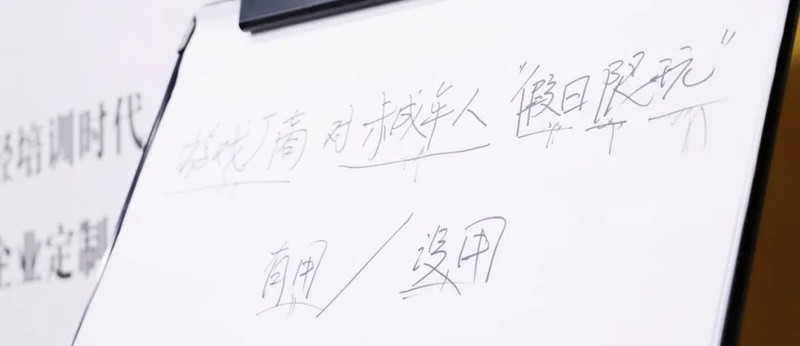 游戏厂商 对未成年人 "假日限玩"
有用/没用
培训时代
企业定制